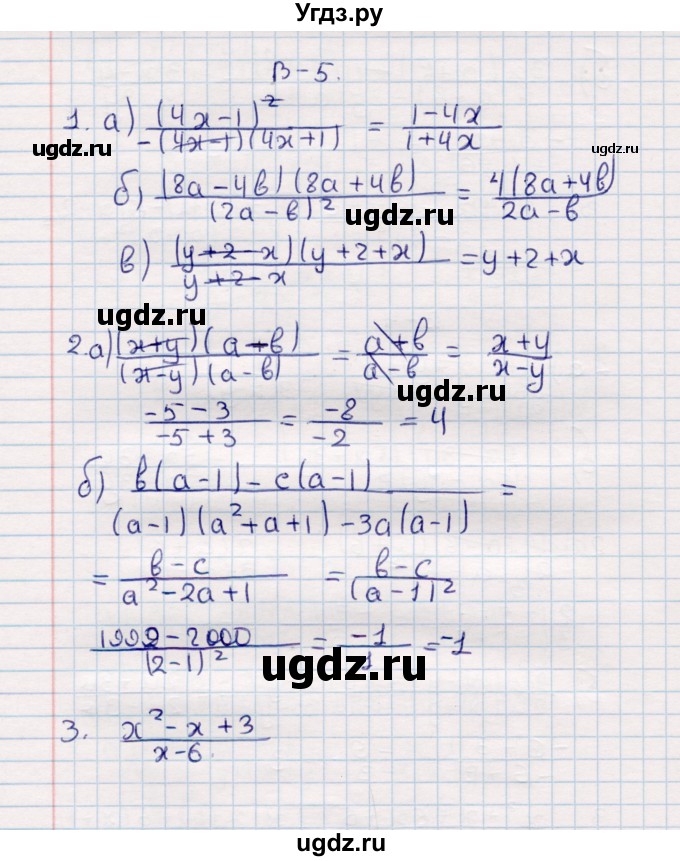 Угдз.ру
В-5.
1. а) (4x-1)² / -(4x-1)(4x+1) = 1-4x / 1+4x
ugdz.ru
ugdz.ru
б) (8a-4в)(8a+4в) / (2a-в)² = 4(8a+4в) / 2a-в
ugdz.ru
в) (y+2-x)(y+2+x) / y+2-x = y+2+x
ugdz.ru
2. а) (x+y)(a-в) / (x-y)(a-в) = a+в / a-в = x+y / x-y
ugdz.ru
-5-3 / -5+3 = -8 / -2 = 4
б) в(a-1)-c(a-1) / (a-1)(a²+a+1)-3a(a-1) =
= в-c / a²-2a+1 = в-c / (a-1)²
1999-2000 / (2-1)² = -1 / 1 = -1
ugdz.ru
3. x²-x+3 / x-6.
ugdz.ru
ugdz.ru